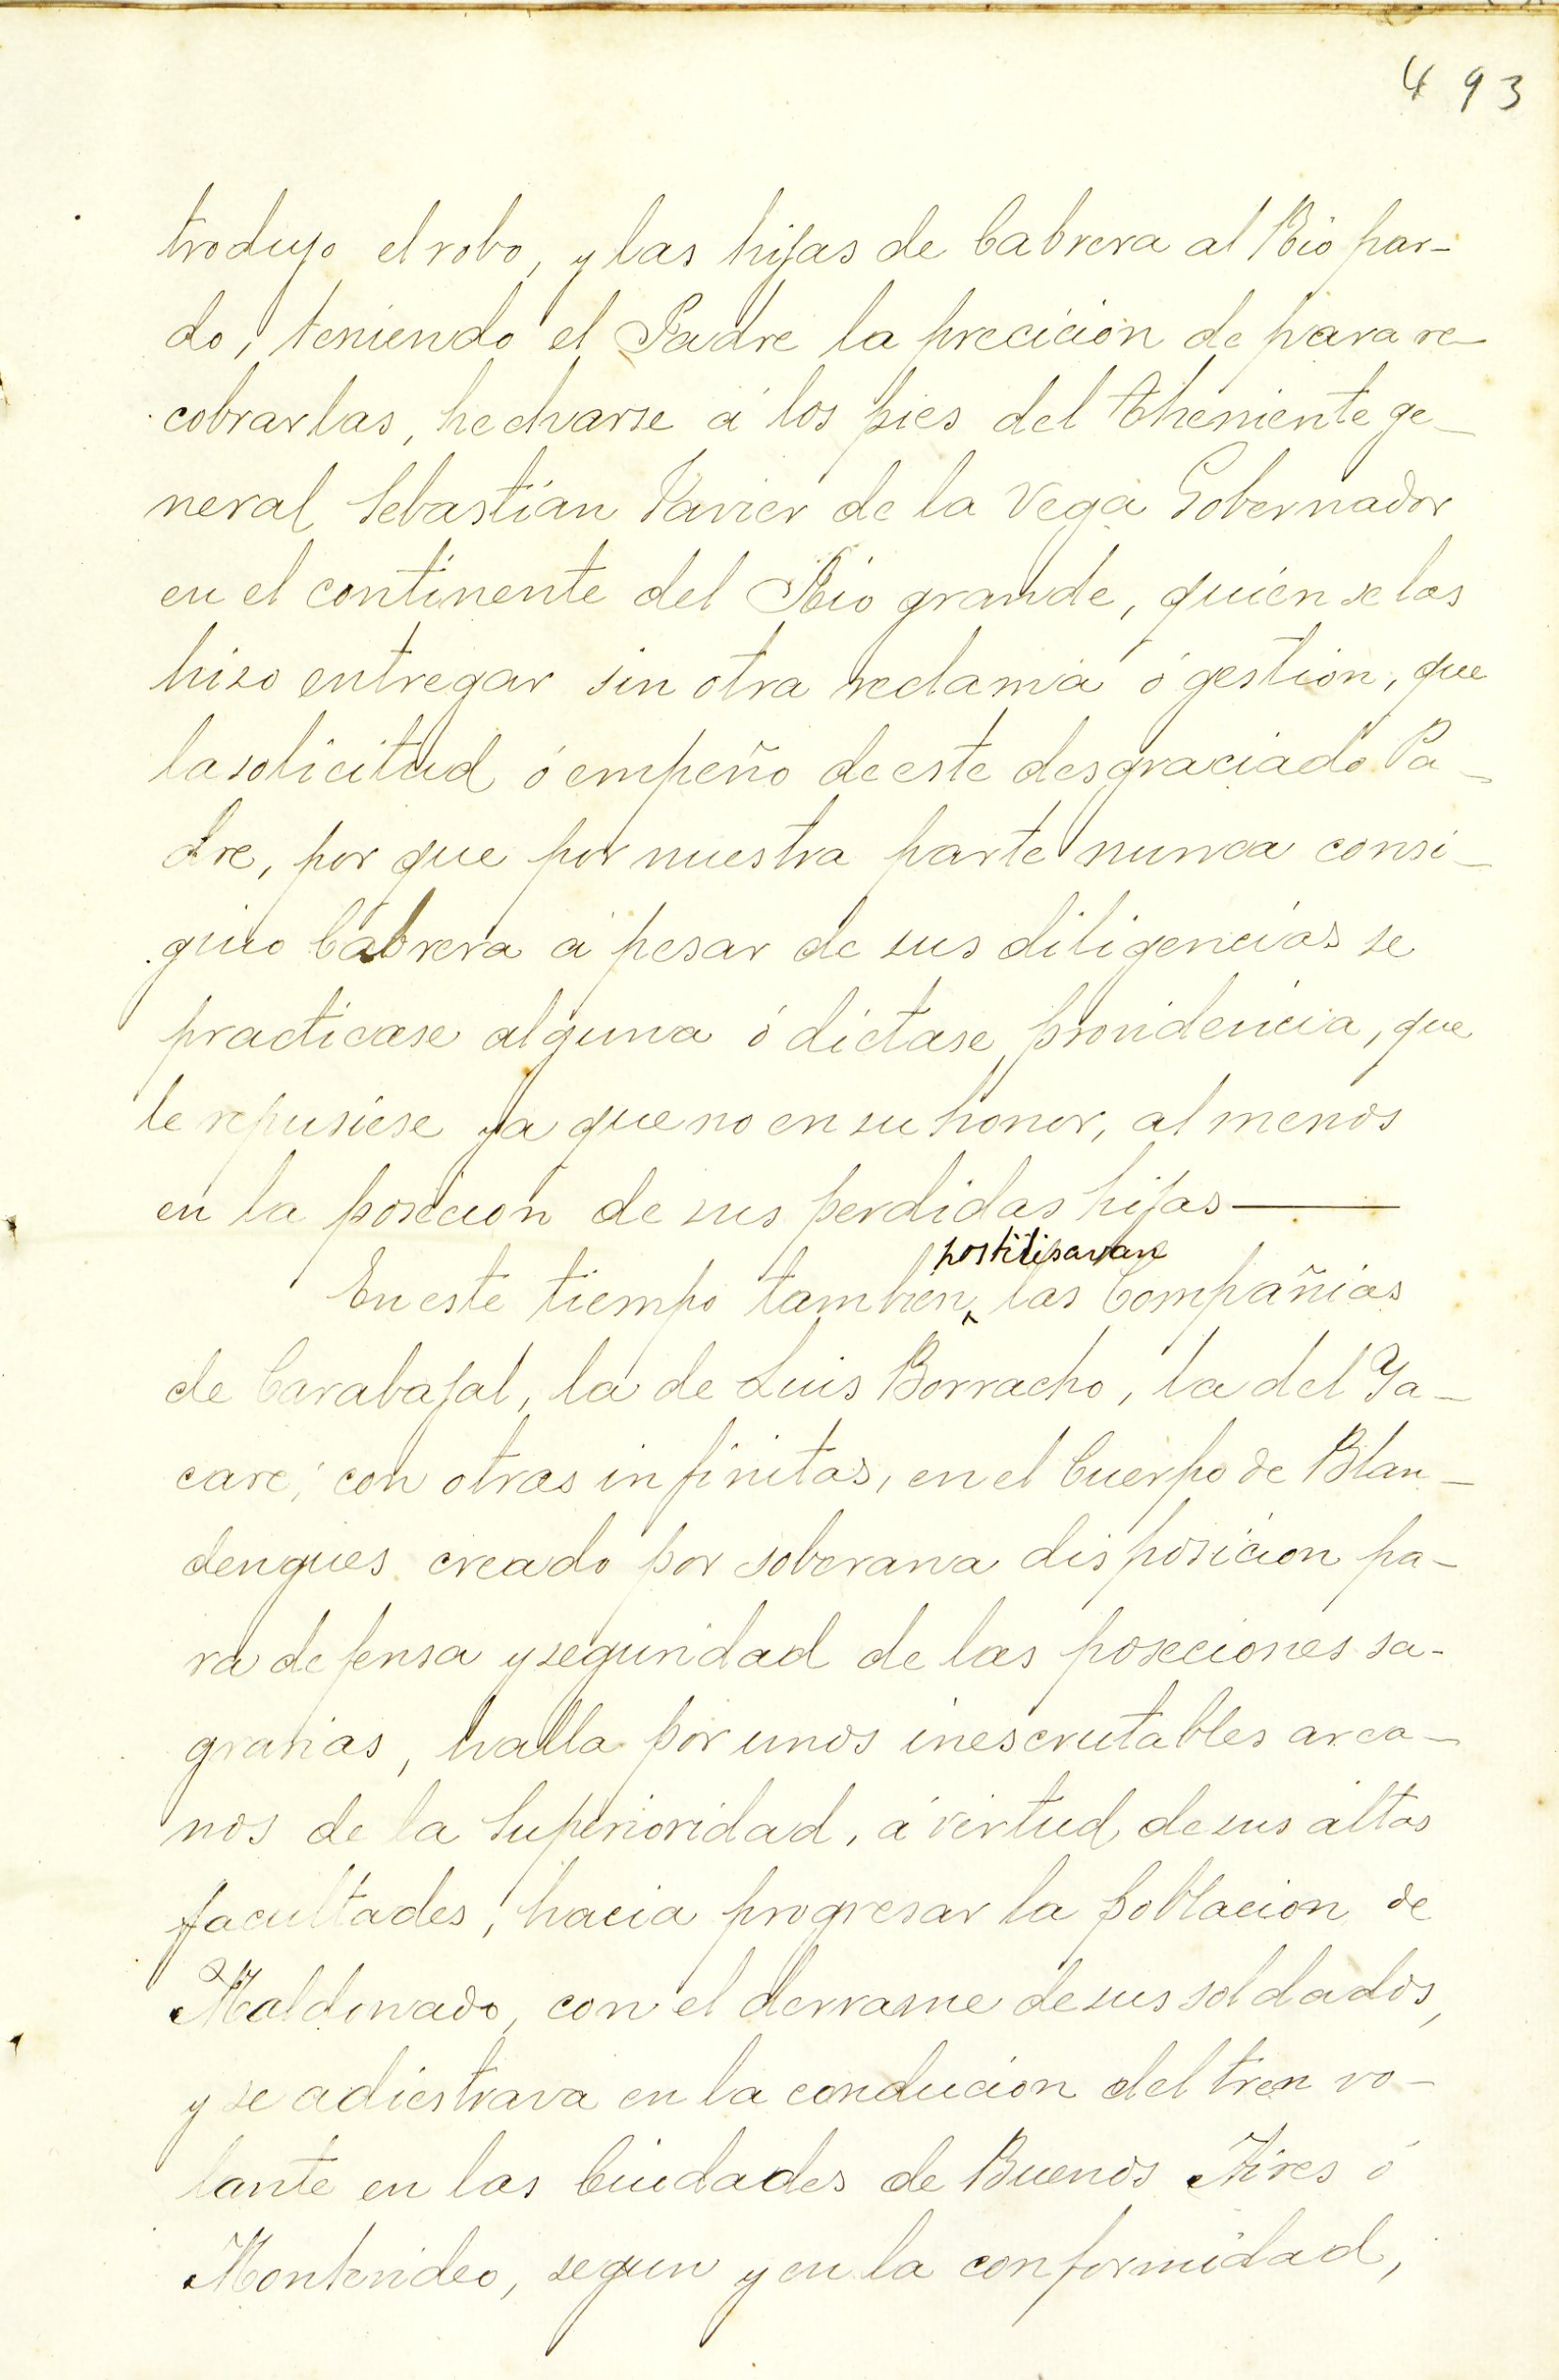 493
trodujo el robo, y las hijas de Cabrera al Rio par-
do, teniendo el Padre la precicion de para re-
cobrarlas, hecharse á los pies del Theniente ge-
neral Sebastian Xavier de la Vega Gobernador
en el continente del Rio grande, quien se las
hizo entregar sin otra reclamia ó gestion, que
la solicitud ó empeño de este desgraciado Pa-
dre, por que por nuestra parte nunca consi-
guio Cabrera á pesar de sus diligencias se
practicase alguna ó dictase providencia, que
le repusiese ya que no en su honor, al menos
en la posecion de sus perdidas hijas———
postilisavan
En este tiempo tambien ^ las Compañias
de Carabajal, la de Luis Borracho, la del Ya-
care; con otras infinitas, en el Cuerpo de Blan-
dengues creado por soberana disposicion pa-
ra defensa y seguridad de las poseciones sa-
granias, halla por unos inescrutables arca-
nos de la Superioridad, á virtud de sus altas
facultades, hacia progresar la poblacion de
Maldonado, con el derrame de sus soldados,
y se adiestrava en la conducion del tren vo-
lante en las Ciudades de Buenos Aires ó
Montevideo, segun y en la conformidad,